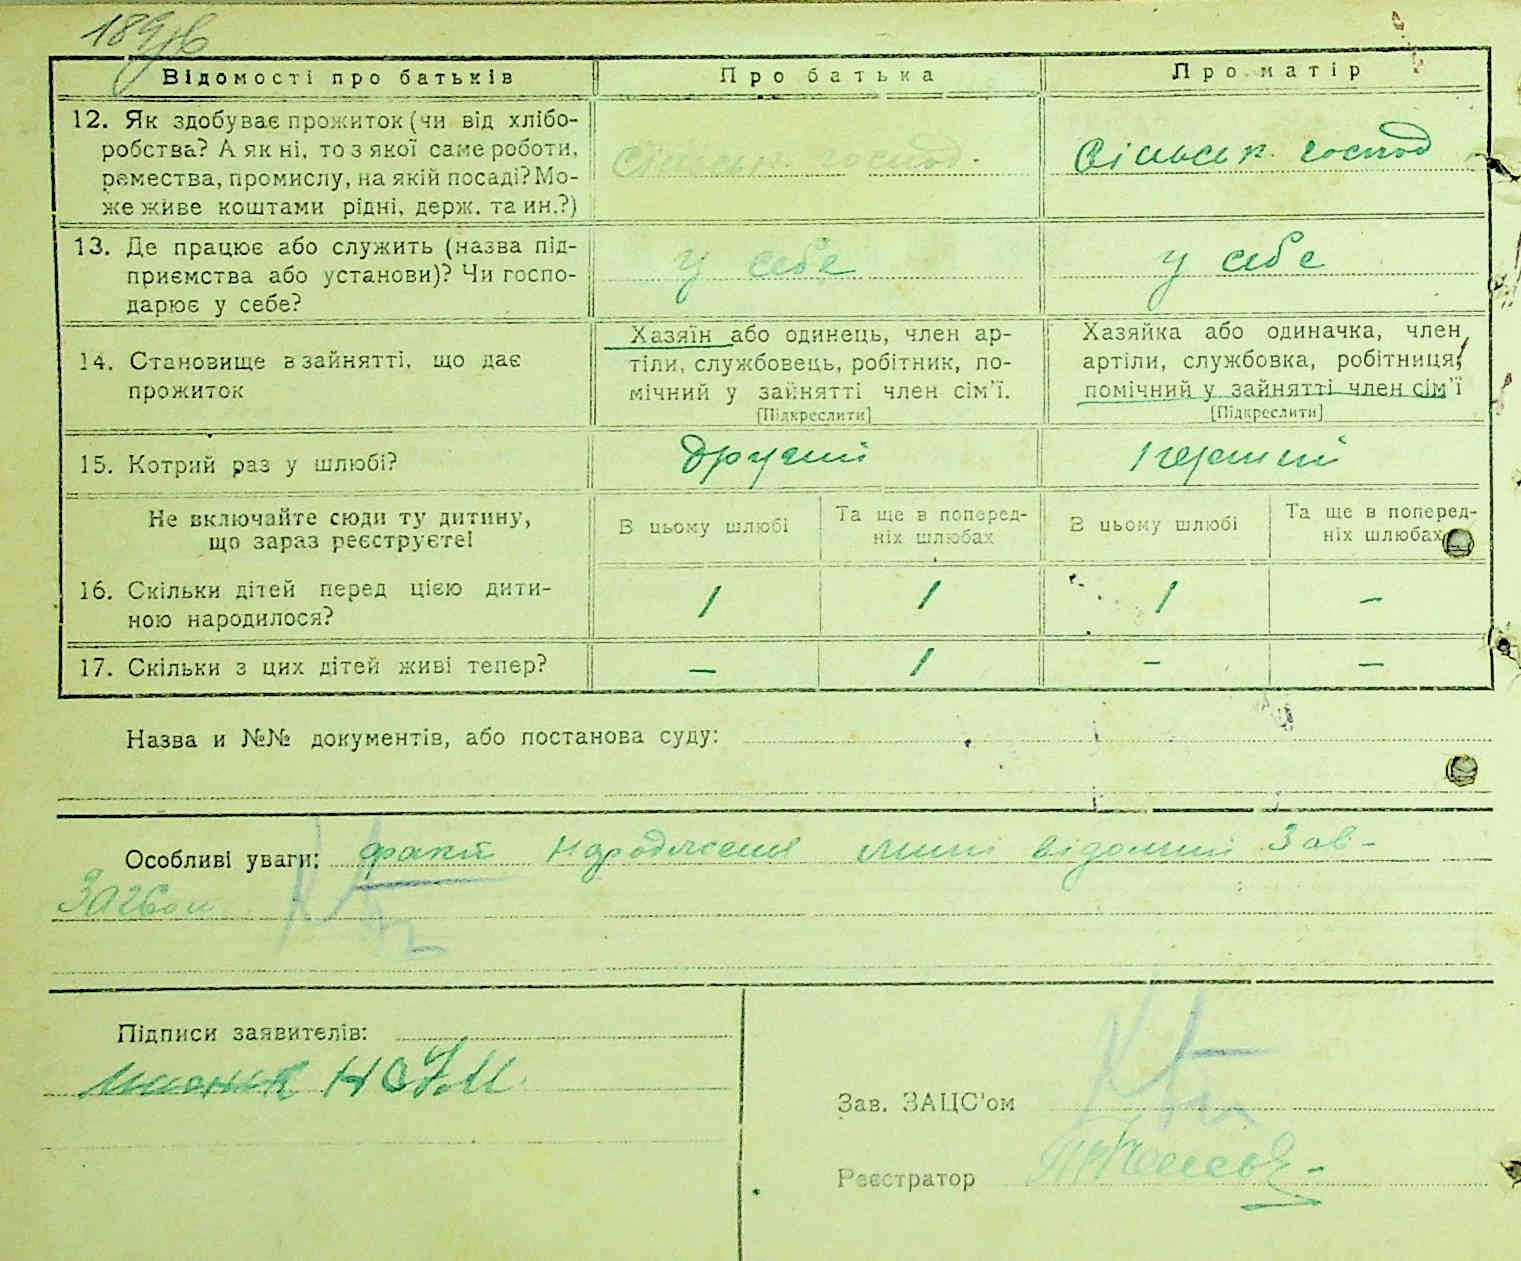 189 зв
Відомості про батьків
Про батька
Про матір
12. Як здобуває прожиток (чи від хлібо-
робства? А як ні, то з якої саме роботи,
ремества, промислу, на якій посаді? Мо-
же живе коштами рідні, держ. та ин.?)
Сільськ. господ.
Сільськ. господ
13. Де працює або служить (назва під-
приємства або установи)? Чи госпо-
дарює у себе?
у себе
у себе
14. Становище в зайнятті, що дає
прожиток
Хазяїн або одинець, член ар-
тіли, службовець, робітник, по-
мічний у зайнятті член сім'ї.
[Підкреслити]
Хазяйка або одиначка, член
артіли, службовка, робітниця,
помічний у зайнятті член сім'ї
[Підкреслити]
15. Котрий раз у шлюбі?
другий
перший
Не включайте сюди ту дитину,
що зараз реєструєте!
В цьому шлюбі
Та ще в поперед-
ніх шлюбах
В цьому шлюбі
Та ще в поперед-
ніх шлюбах
16. Скільки дітей перед цією дити-
ною народилося?
1
1
1
—
17. Скільки з цих дітей живі тепер?
—
1
—
—
Назва и №№ документів, або постанова суду:
Особливі уваги: факт народження мині відомий Зав-
Підписи заявителів:
Зав. ЗАЦС'ом
Реєстратор